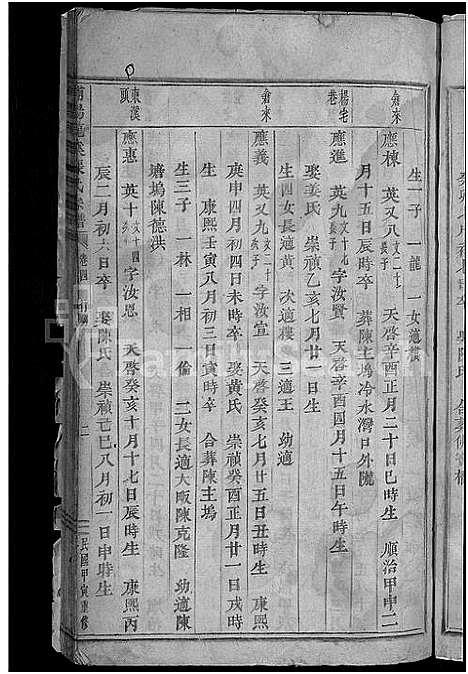 生一子 一龍 一女適樓
俞來
應棟 英又八文二十長子 天啓辛酉正月二十日巳時生 順治甲申二
月十五日辰時卒 葬陳主塢冷水灣日外隴
楊宅巷
應進 英九文十七長子 字汝賢 天啓辛酉四月十五日午時生
娶姜氏 崇禎乙亥七月廿一日生
生四女長適黃 次適樓 三適王 幼適
俞來
應義 英又九文二十次子 字汝宣 天啓癸亥七月廿五日丑時生 康熙
庚申四月初四日未時卒 娶黃氏 崇禎癸酉正月廿一日戌時
生 康熙壬寅八月初三日寅時卒 合葬陳主塢
生三子 一林 一相 一倫 二女長適大畈陳克隆 幼適陳
塘塢陳德洪
東溪頭
應惠 英十文十四 字汝恩 天啓癸亥十月十七日辰時生 康熙丙
辰二月初六日卒 娶陳氏 崇禎己巳八月初一日申時生
氏宗譜 卷四
民國甲寅重修